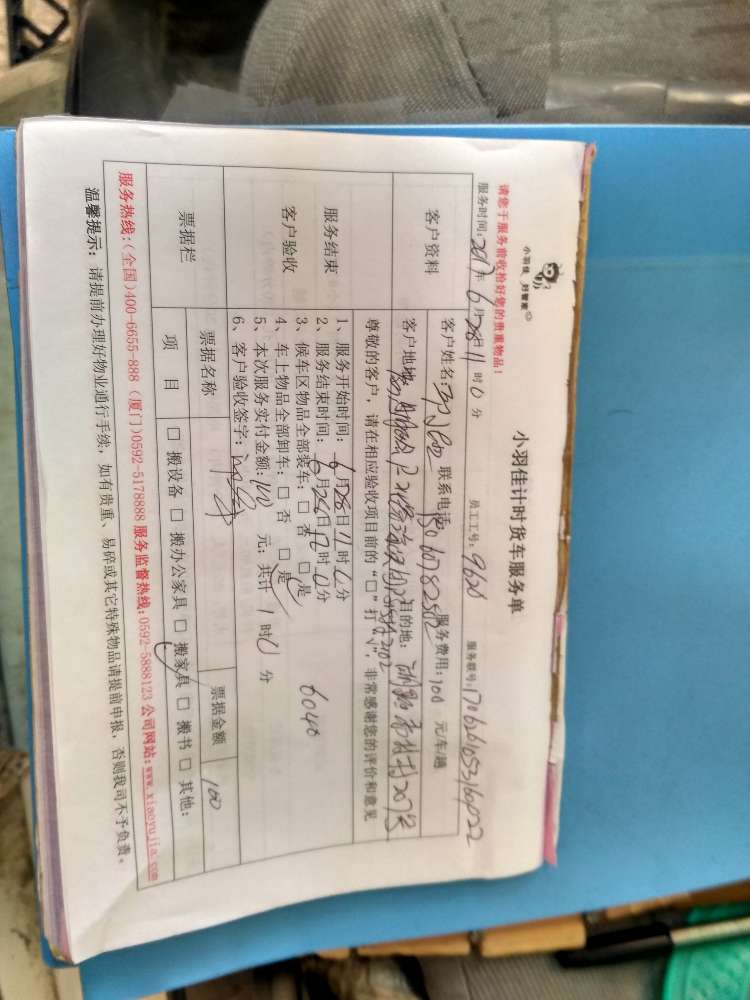 小羽佳 好管家
小羽佳计时货车服务单
请您于服务前收拾好您的贵重物品！
服务时间：2017年6月28日11时0分 员工工号：9620 服务联号：
客户资料
客户姓名： 联系电话： 服务费用：100 元/车/趟
客户地址： 目的地：
尊敬的客户，请在相应验收项目前的“□”打“√”，非常感谢您的评价和意见
服务结束
客户验收
1、服务开始时间：6月28日11时0分
2、服务结束时间：6月28日12时0分
3、候车区物品全部装车：□ 否 □ 是
4、车上物品全部卸车：□ 否 □ 是
5、本次服务实付金额：100 元；共计 1 时0 分
6、客户验收签字：
6040
票据栏
票据名称 票据金额 100
项 目 □ 搬设备 □ 搬办公家具 □ 搬家具 □ 搬书 □ 其他：
服务热线：(全国)400-6655-888 (厦门)0592-5178888 服务监督热线：0592-5888123 公司网站：www.xiaoyujia.com
温馨提示：请提前办理好物业通行手续，如有贵重、易碎或其它特殊物品请提前申报，否则我司不予负责。